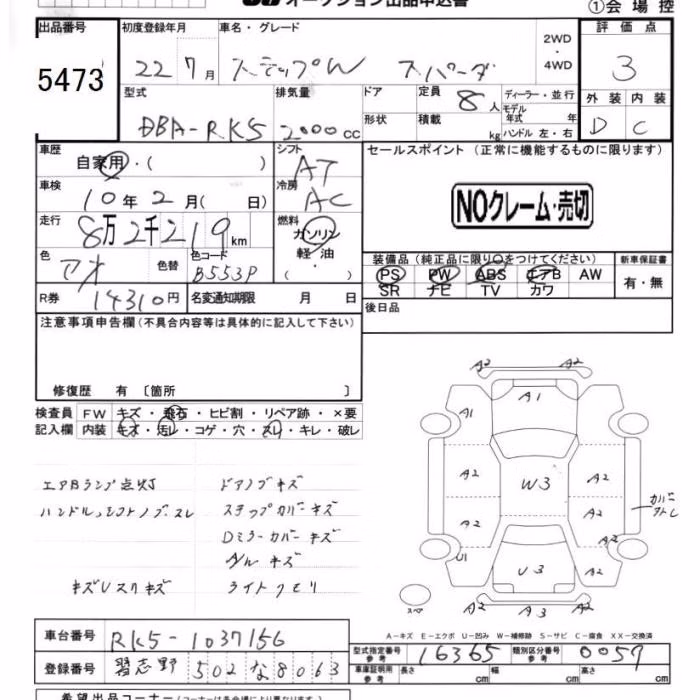 オークション出品申込書
①会場控
出品番号 初度登録年月 車名・グレード 2WD・4WD 評価点
5473 22 7月 ステップW スパーダ 3
型式 排気量 ドア 定員 8人 ディーラー・並行 外装 内装
DBA-RK5 2000cc 形状 積載 kg モデル年式 年 ハンドル 左・右 D C
車歴 自家用・( ) シフト AT セールスポイント(正常に機能するものに限ります)
車検 10年2月( 日) 冷房 AC
NOクレーム・売切
走行 8万2千219km 燃料 ガソリン 軽・油 ( )
色 アオ 色替 色コード B553P
装備品(純正品に限り○をつけてください) 新車保証書
PS PW ABS エアB AW 有・無
SR ナビ TV カワ
R券 14310円 名変通知期限 月 日 後日品
注意事項申告欄(不具合内容等は具体的に記入して下さい)
修復歴 有 〔箇所 〕
検査員 FW キズ・飛石・ヒビ割・リペア跡・×要
記入欄 内装 キズ・汚レ・コゲ・穴・スレ・キレ・破レ
エアBランプ点灯 ドアノブキズ
ハンドル、シフトノブスレ ステップカバーキズ
Dミラーカバーキズ
キズUスリキズ ライトクモリ
A2 A2
A1 A1
A2 W3 A2
A2 A2
A2
U1 U3 A2
A2 A3 A2
カバー
スペア
A-キズ E-エクボ U-凹み W-補修跡 S-サビ C-腐食 XX-交換済
車台番号 RK5-1037156
型式指定番号 参考 16365 類別区分番号 参考 0059
登録番号 習志野 502 な 8063
車庫証明用 参考 長さ cm 幅 cm 高さ cm
希望出品コーナー